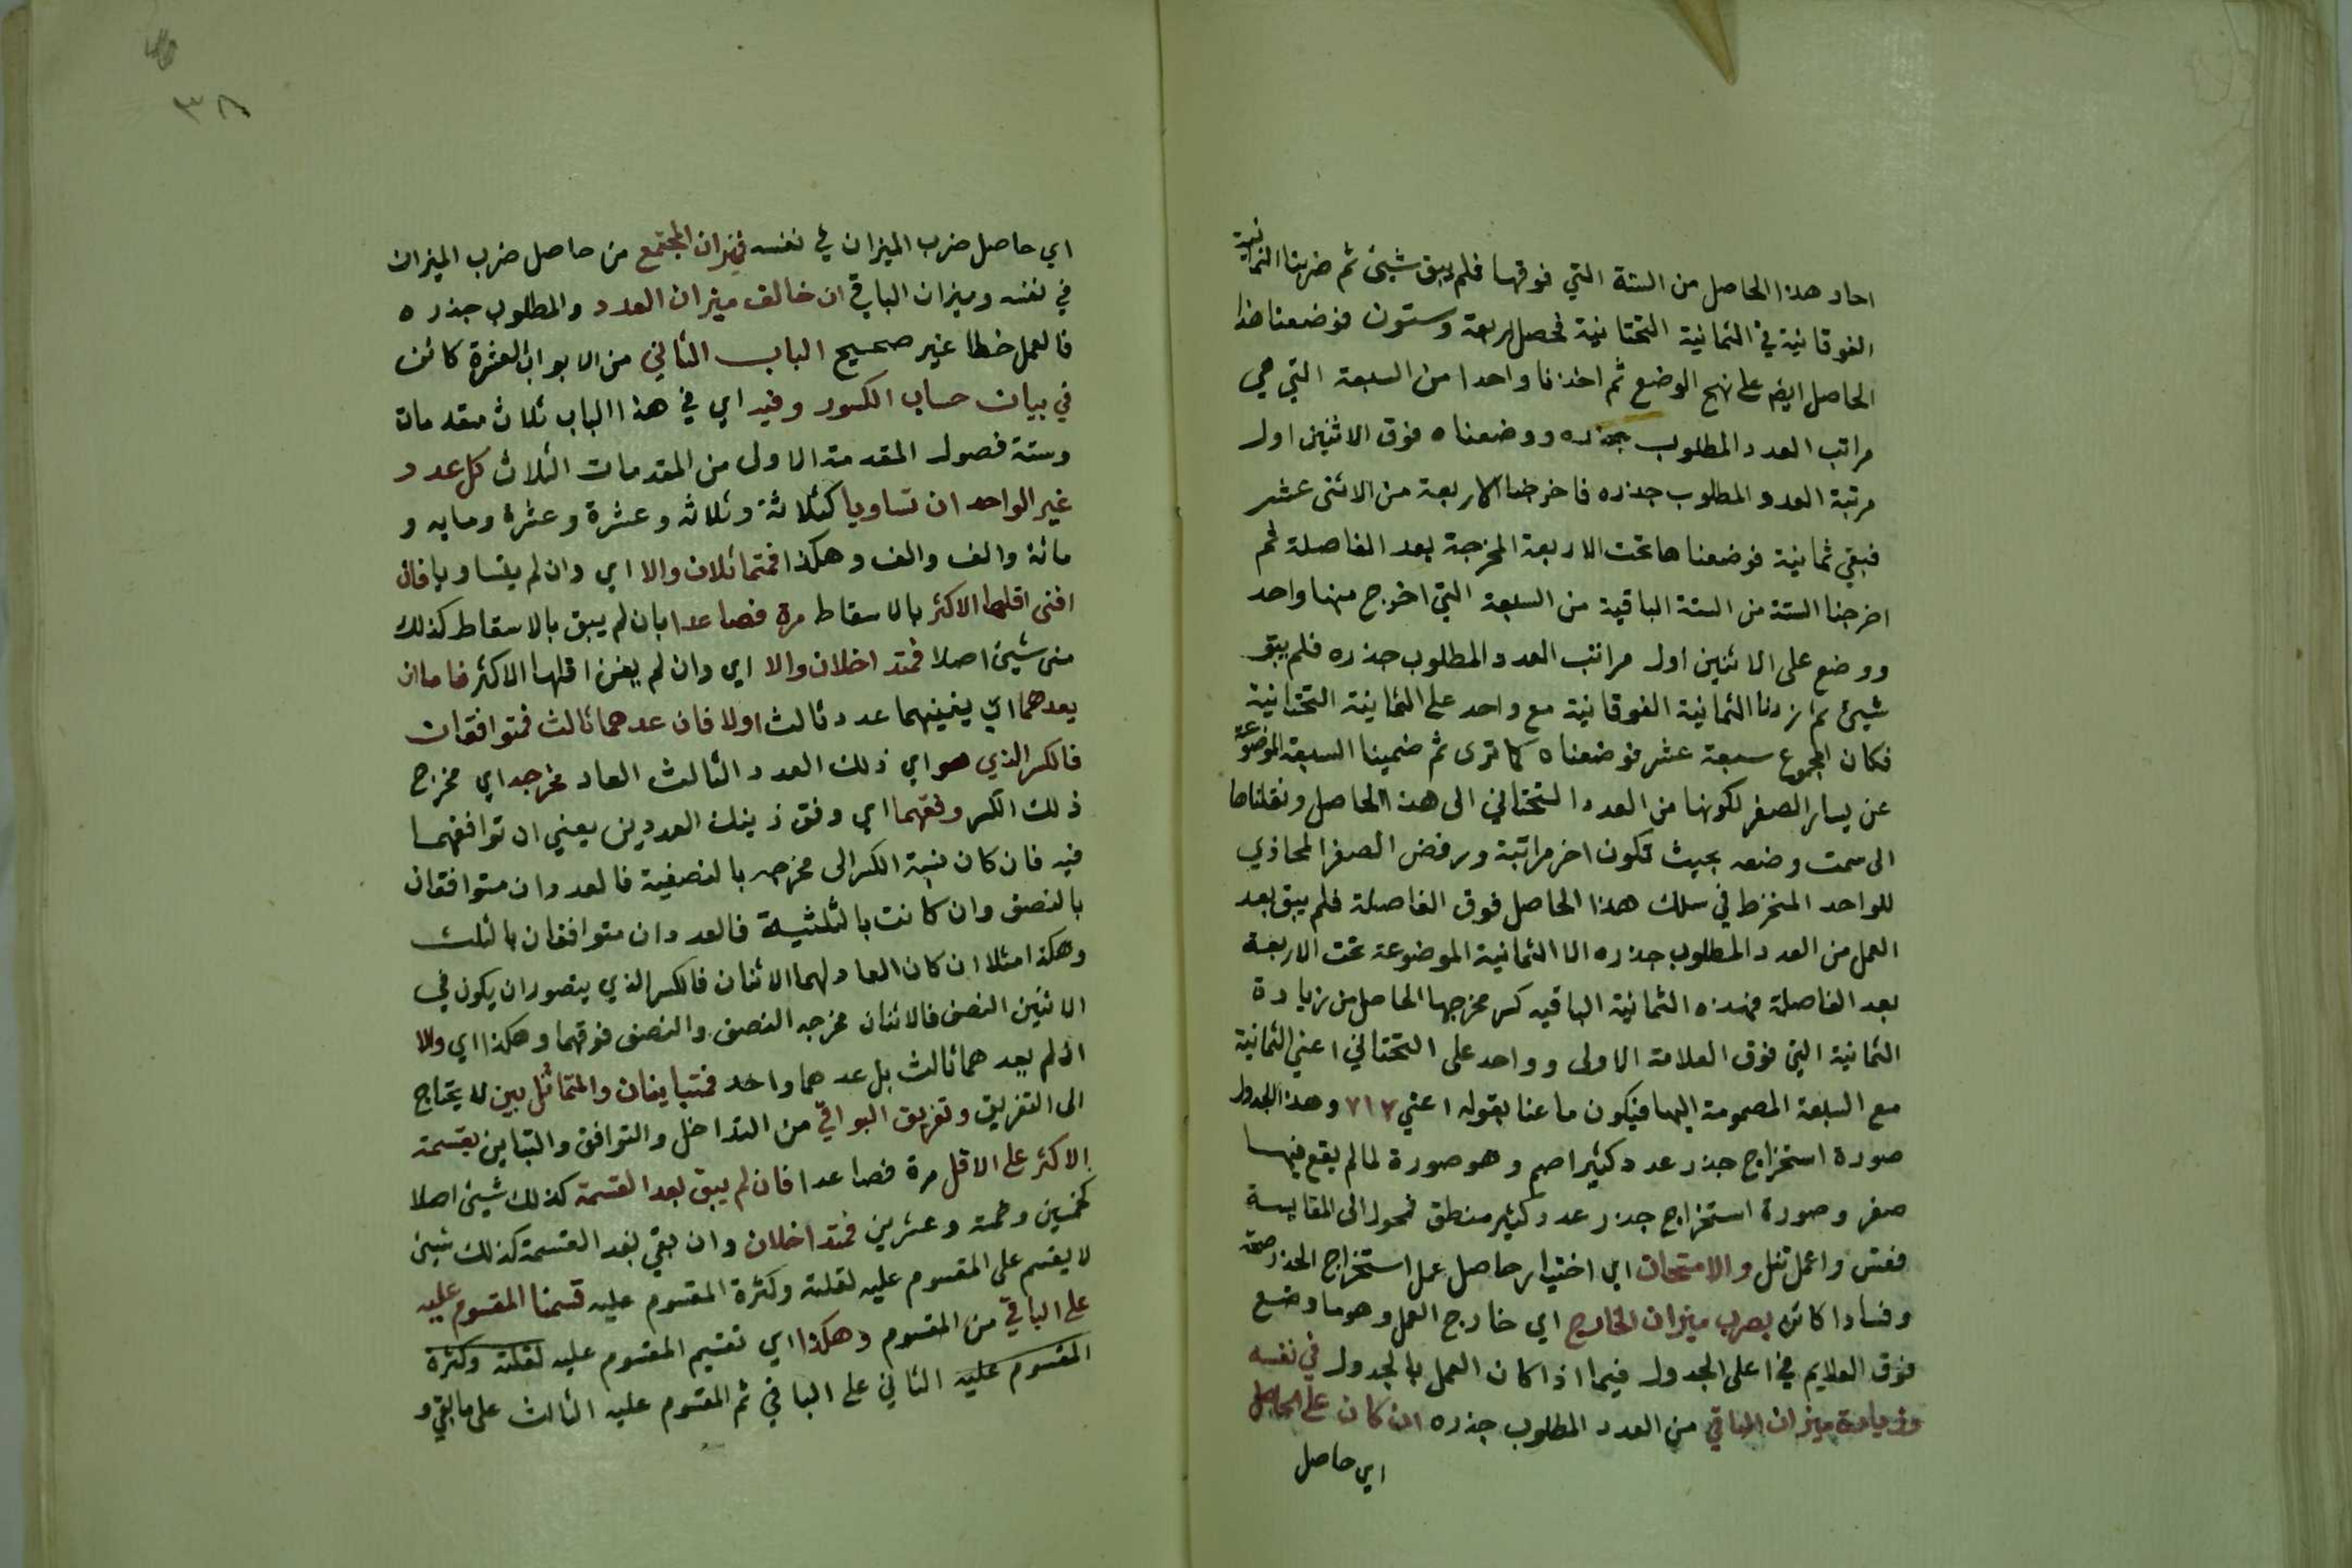 احاد هذا الحاصل من الستة التي فوقها فلم يبق شيئ ثم ضربنا الثمانية
الفوقانية في الثمانية التحتانية فحصل اربعة وستون فوضعنا هذا
الحاصل ايضا على نهج الوضع ثم اخذنا واحدا من السبعة التي هي
مراتب العدد المطلوب جذره ووضعناه فوق الاثنين اول
مرتبة العدد المطلوب جذره فاخرجنا الاربعة من الاثنى عشر
فبقي ثمانية فوضعناها تحت الاربعة المخرجة بعد الفاصلة ثم
اخرجنا الستة من الستة الباقية من السبعة التي اخرج منها واحد
ووضع على الاثنين اول مراتب العدد المطلوب جذره فلم يبق
شيئ ثم زدنا الثمانية الفوقانية مع واحد على الثمانية التحتانية
فكان المجموع سبعة عشر فوضعناه كما ترى ثم ضمينا السبعة الموضوعة
عن يسار الصفر لكونها من العدد التحتاني الى هذا الحاصل ونقلناها
الى سمت وضعه بحيث تكون اخر مراتبة ورفض الصفر المحاذي
للواحد المنخرط في سلك هذا الحاصل فوق الفاصلة فلم يبق بعد
العمل من العدد المطلوب جذره الا الثمانية الموضوعة تحت الاربعة
بعد الفاصلة فهذه الثمانية الباقيه كسر مخرجها الحاصل من زيادة
الثمانية التي فوق العلامة الاولى وواحد على التحتاني اعني الثمانية
مع السبعة المضمومة اليها فيكون ما عنا بقوله اعني ٧١٧ وهذا الجدول
صورة استخراج جذر عدد كثير اصم وهو صورة لما لم يقع فيها
صفر وصورة استخراج جذر عدد كثير منطق فمحول الى المقايسة
ففتش واعمل تنل والامتحان اي اختبار حاصل عمل استخراج الجذر صحة
وفسادا كائن بضرب ميزان الخارج اي خارج العمل وهو ما وضع
فوق العلايم في اعلى الجدول فيما اذا كان العمل بالجدول في نفسه
وزيادة ميزان الباقي من العدد المطلوب جذره ان كان على الحاصل
اي حاصل
٣٨
اي حاصل ضرب الميزان في نفسه فميزان المجتمع من حاصل ضرب الميزان
في نفسه وميزان الباقي ان خالف ميزان العدد والمطلوب جذره
فالعمل خطا غير صحيح الباب الثاني من الابواب العشرة كائن
في بيان حساب الكسور وفيه اي في هذا الباب ثلاث مقدمات
وستة فصول المقدمة الاولى من المقدمات الثلاث كل عدد
غير الواحد ان تساويا كثلاثة وثلاثه وعشرة وعشرة ومايه و
مائة والف والف وهكذا فمتماثلان والا اي وان لم يتساويا فان
افنى اقلهما الاكثر بالاسقاط مرة فصاعدا بان لم يبق بالاسقاط كذلك
منى شيئ اصلا فمتداخلان والا اي وان لم يفن اقلهما الاكثر فاما ان
يعدهما اي يفنيهما عدد ثالث اولا فان عدهما ثالث فمتوافقان
فالكسر الذي هو اي ذلك العدد الثالث العاد مخرجه اي مخرج
ذلك الكسر وفقهما اي وفق ذينك العددين يعني ان توافقهما
فيه فان كان نسبة الكسر الى مخرجه بالنصفية فالعددان متوافقان
بالنصف وان كانت بالثلثية فالعددان متوافقان بالثلث
وهكذا مثلا ان كان العاد لهما الاثنان فالكسر الذي يتصور ان يكون في
الاثنين النصف فالاثنان مخرجه النصف والنصف فوقهما وهكذا اي والا
ان لم يعدهما ثالث بل عدهما واحد فمتباينان والتماثل بين لا يحتاج
الى التفريق وتفريق البواقي من التداخل والتوافق والتباين بقسمة
الاكثر على الاقل مرة فصاعدا فان لم يبق بعد القسمة كذلك شيئ اصلا
كخمسين وخمسة وعشرين فمتداخلان وان بقي بعد القسمة كذلك شيئ
لا يقسم على المقسوم عليه لقلته وكثرة المقسوم عليه قسمنا المقسوم عليه
على الباقي من المقسوم وهكذا اي تقسيم المقسوم عليه لقلته وكثرة
المقسوم عليه الثاني على الباقي ثم المقسوم عليه الثالث على ما بقي و